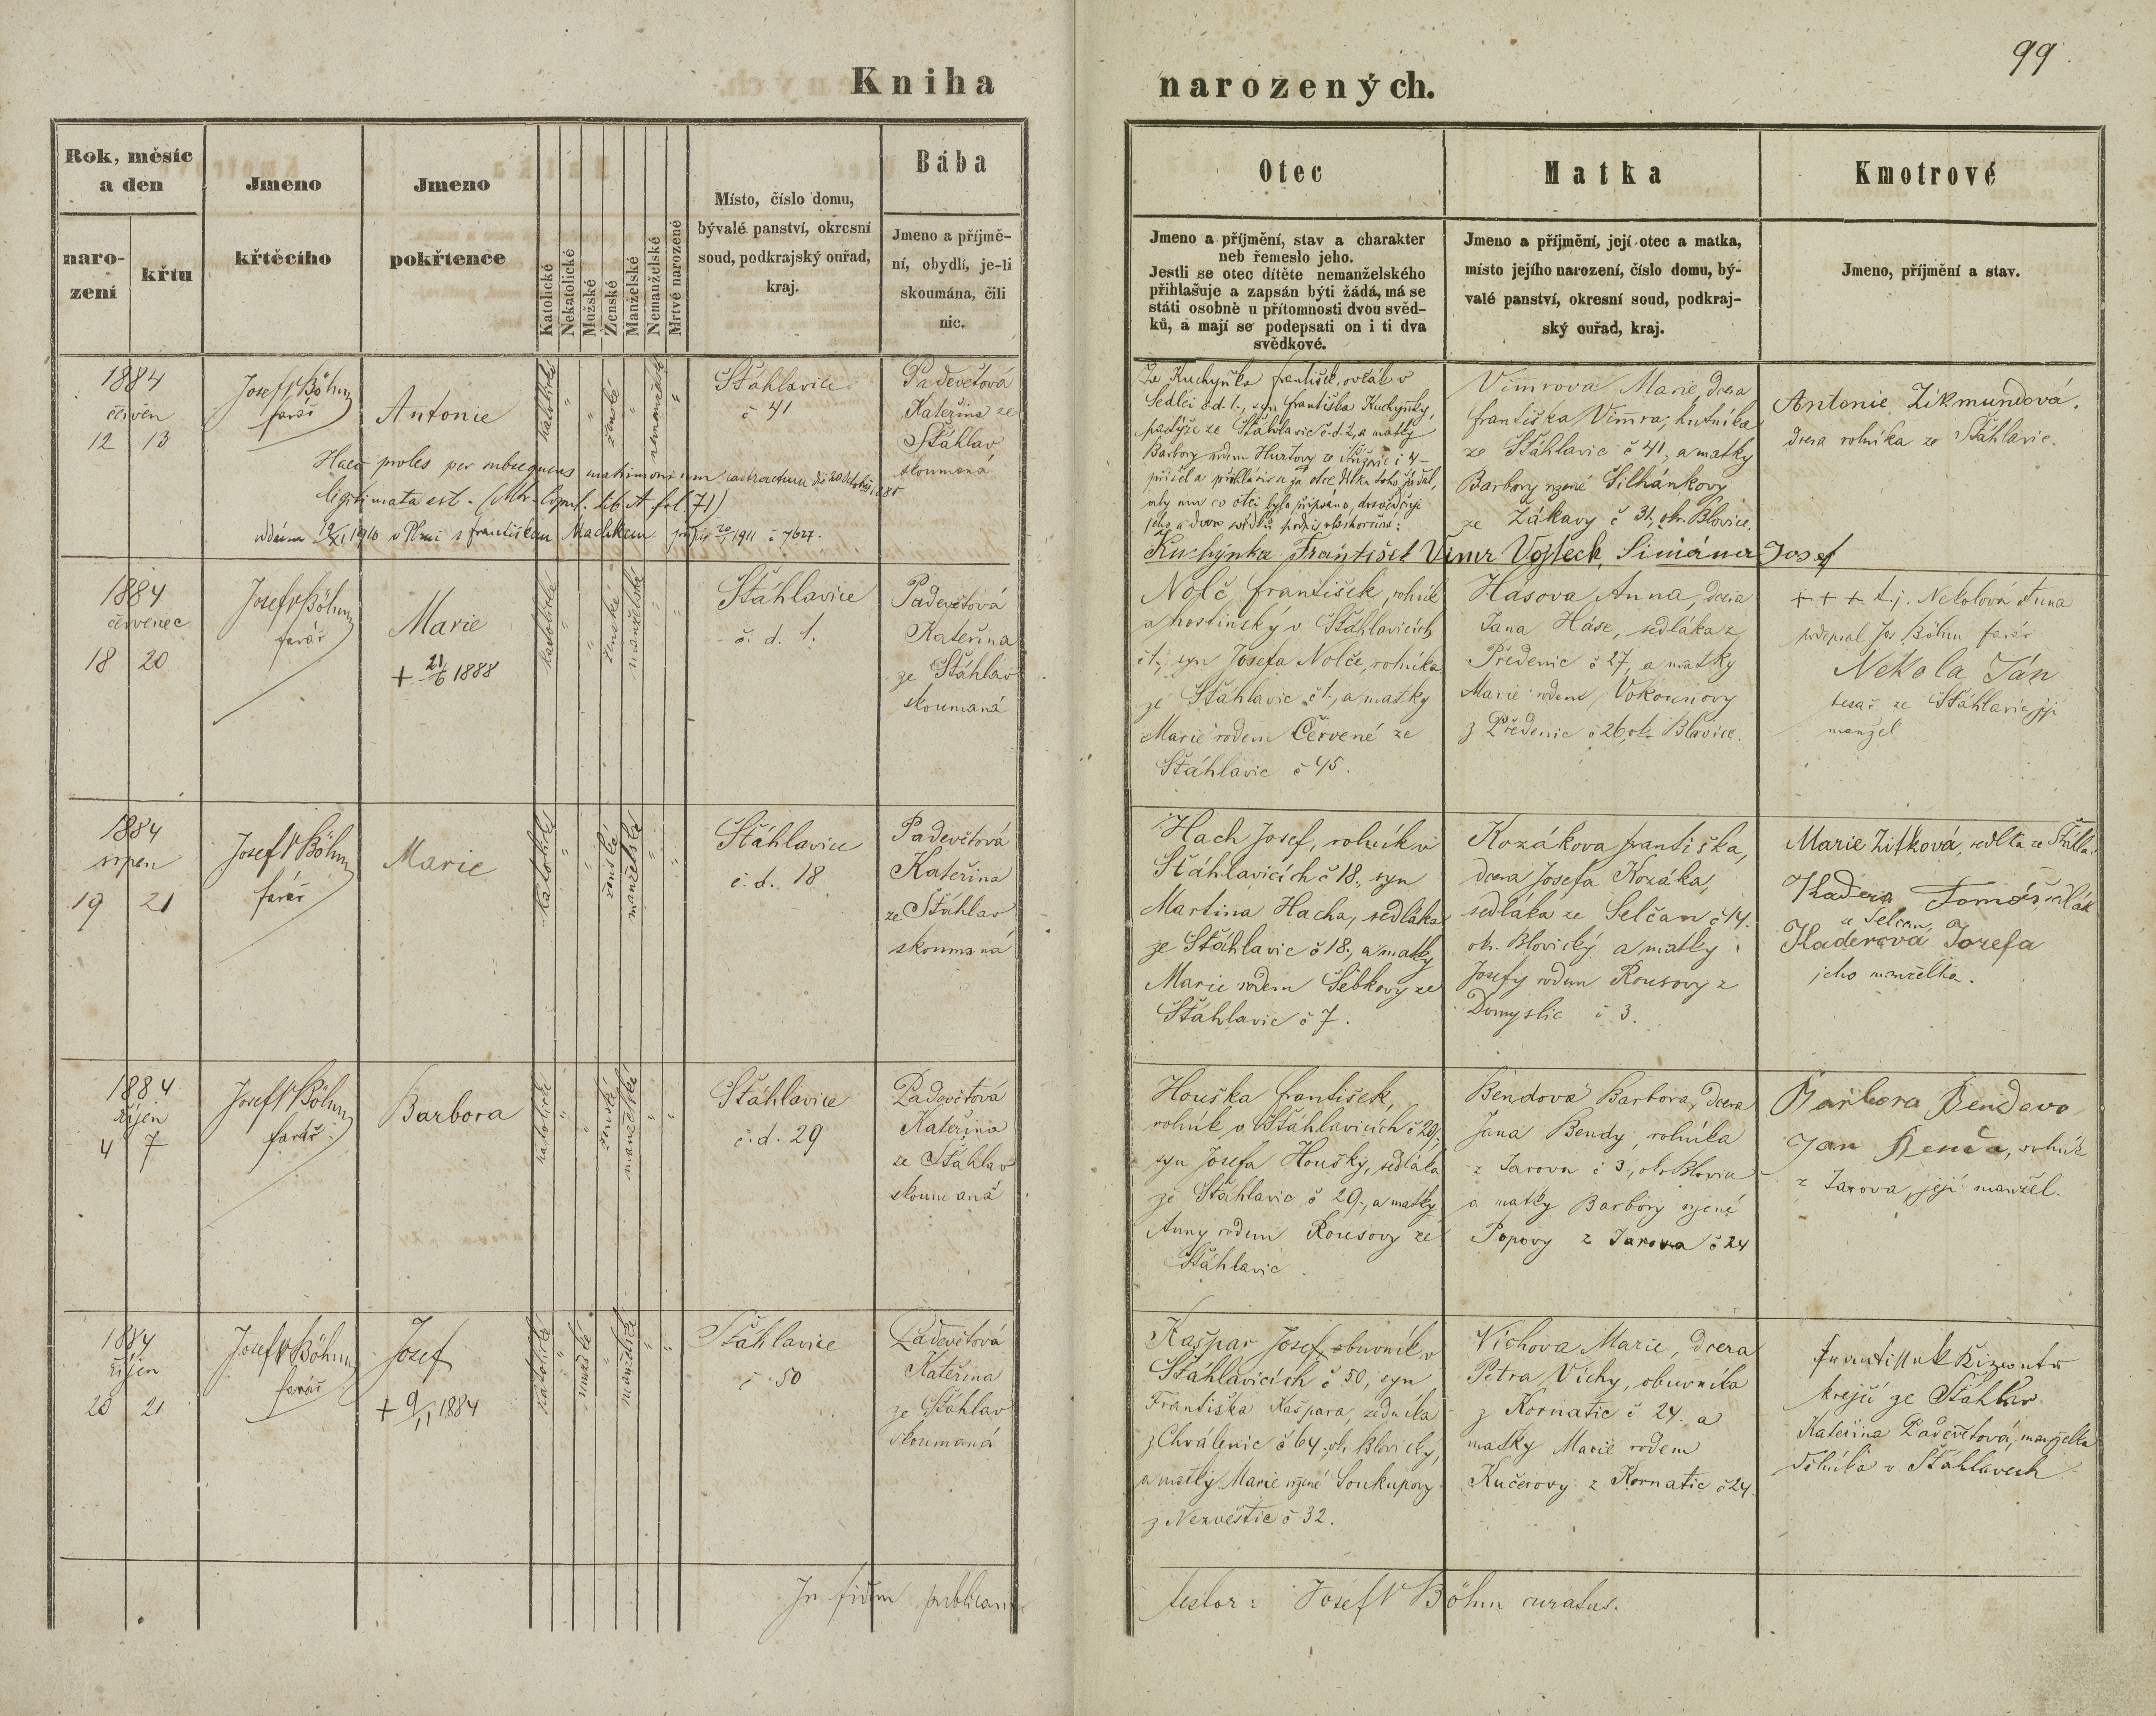 99.
Kniha narozených.
Rok, měsíc
a den
naro-
zení
křtu
Jmeno
křtěcího
Jmeno
pokřtence
Katolické
Nekatolické
Mužské
Ženské
Manželské
Nemanželské
Mrtvě narozené
Místo, číslo domu,
bývalé panství, okresní
soud, podkrajský ouřad,
kraj.
Bába
Jmeno a příjmě-
ní, obydlí, je-li
skoumána, čili
nic.
Otec
Jmeno a příjmění, stav a charakter
neb řemeslo jeho.
Jestli se otec dítěte nemanželského
přihlašuje a zapsán býti žádá, má se
státi osobně u přítomnosti dvou svěd-
ků, a mají se podepsati on i ti dva
svědkové.
Matka
Jmeno a příjmění, její otec a matka,
místo jejího narození, číslo domu, bý-
valé panství, okresní soud, podkraj-
ský ouřad, kraj.
Kmotrové
Jmeno, příjmění a stav.
1884
červen
12 13
Josef Böhm
farář
Antonie
katolické
"
"
ženské
"
nemanželské
"
Šťáhlavice
č 41
Padevětová
Kateřina ze
Šťáhlav
skoumaná
Haec proles per subsequens matrimonium contractum
legitimata est. (Mtr. Copul. lib A fol. 71)
oddána 19/XI 1910 v Plzni s Františkem Machkem 1911 č 7627.
Že Kuchyňka František, ovčák v
Sedlci č.d. 1., syn Františka Kuchyňky,
pastýře ze Šťáhlavic č.d. 2, a matky
Barbory rodem Hurtovy
přišel a přihlásiv se za otce dítka toho žádal,
aby mu co otci bylo připsáno, dosvědčuje
jeho a dvou svědků podpis
Kuchyňka František Vimr Vojtěch, Simáner Josef
Vimrova Marie, dcera
Františka Vimra, hutníka
ze Šťáhlavic č 41, a matky
Barbory rozené Silhánkovy
ze Zákavy č 31, okr. Blovice.
Antonie Zikmundová.
dcera rolníka ze Šťáhlavic.
1884
červenec
18 20
Josef Böhm
farář
Marie
+ 21/6 1888
katolické
"
"
ženské
manželské
"
"
Šťáhlavice
č. d. 1.
Padevětová
Kateřina
ze Šťáhlav
skoumaná
Nolč František, rolník
a hostinský v Šťáhlavicích
č 1., syn Josefa Nolče, rolníka
ze Šťáhlavic č 1., a matky
Marie rodem Červené ze
Šťáhlavic č 45.
Hasova Anna, dcera
Jana Háse, sedláka z
Předenic č 27, a matky
Marie rodem Vokounovy
z Předenic č 26, ok. Blovice.
+ + + t. j. Nekolová Anna
podepsal Jos Böhm farář
Nekola Ján
tesař ze Šťáhlavic její
manžel
1884
srpen
19 21
Josef Böhm
farář
Marie
katolické
"
"
ženské
manželské
"
"
Šťáhlavice
č. d. 18
Padevětová
Kateřina
ze Šťáhlav
skoumaná
Hach Josef, rolník v
Šťáhlavicích č 18., syn
Martina Hacha, sedláka
ze Šťáhlavic č 18., a matky
Marie rodem Šebkovy ze
Šťáhlavic č 7.
Kozákova Františka,
dcera Josefa Kozáka,
sedláka ze Selčan č 14.
ok. Blovický a matky
Josefy rodem Rousovy z
Domyslic č 3.
Marie Zitková, sedlka ze Šťáhla.
Kadera Tomáš, sedlák
z Selčan,
Kaderová Jozefa
jeho manželka.
1884
říjen
4 7
Josef Böhm
farář
Barbora
katolické
"
"
ženské
manželské
"
"
Šťáhlavice
č. d. 29
Padevětová
Kateřina
ze Šťáhlav
skoumaná
Houška František,
rolník v Šťáhlavicích č 29,
syn Josefa Houšky, sedláka
ze Šťáhlavic č 29., a matky
Anny rodem Rousovy ze
Šťáhlavic.
Bendova Barbora, dcera
Jana Bendy, rolníka
z Jarova č 3., okr. Blovice
a matky Barbory rozené
Popovy z Jarova č 24
Barbora Bendova
Jan Benda, rolník
z Jarova, její manžel.
1884
říjen
20 21
Josef Böhm
farář
Josef
+ 9/11 1884
katolické
"
mužské
"
manželské
"
"
Šťáhlavice
č. 50
Padevětová
Kateřina
ze Šťáhlav
skoumaná
Kašpar Josef, obuvník v
Šťáhlavicích č 50, syn
Františka Kašpara, zedníka
z Chválenic č 64, ok. Blovický,
a matky Marie rozené Soukupovy
z Nezvěstic č 32.
Víchova Marie, dcera
Petra Víchy, obuvníka
z Kornatic č. 24. a
matky Marie rodem
Kučerovy z Kornatic č 24.
krejčí ze Šťáhlav
Kateřina Padevětová, manželka
rolníka v Šťáhlavech
In fidem publicam testor: Josef Böhm curatus.